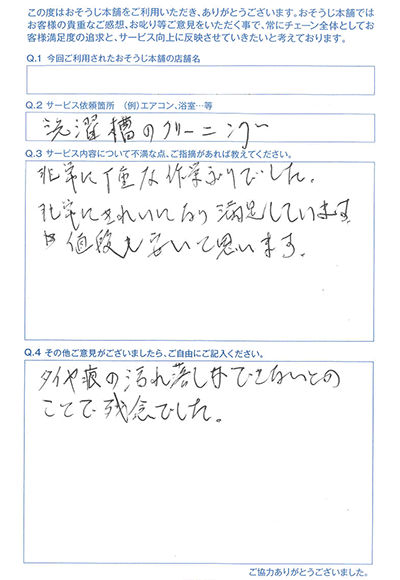 この度はおそうじ本舗をご利用いただき、ありがとうございます。おそうじ本舗では
お客様の貴重なご感想、お叱り等ご意見をいただく事で、常にチェーン全体としてお
客様満足度の追求と、サービス向上に反映させていきたいと考えております。
Q.1 今回ご利用されたおそうじ本舗の店舗名
Q.2 サービス依頼箇所 (例)エアコン、浴室…等
洗濯槽のクリーニング
Q.3 サービス内容について不満な点、ご指摘があれば教えてください。
非常に丁寧な作業ぶりでした。
非常にきれいになり満足しています
値段も安いと思います。
Q.4 その他ご意見がございましたら、ご自由にご記入ください。
タイヤ痕の汚れ落しができないとの
ことで残念でした。
ご協力ありがとうございました。